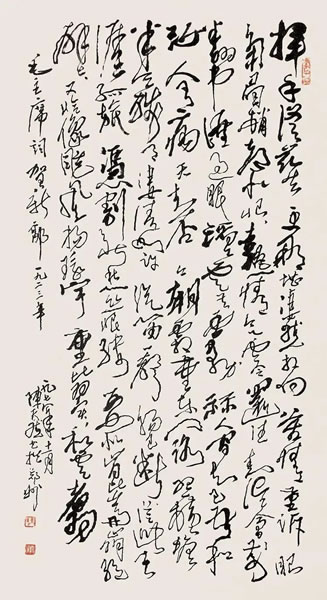 挥手从兹去更那堪凄然相向苦情重诉眼
角眉梢都似恨热泪欲零还住知误会前
番书语过眼滔滔云共雾算人间知己吾和
汝人有病天知否今朝霜重东门路照横塘
半天残月凄清如许汽笛一声肠已断从此天
涯孤旅凭割断愁丝恨缕要似昆仑崩绝
壁又恰像台风扫寰宇重比翼和云翥
毛主席词贺新郎一九二三年
陈天然书于郑州